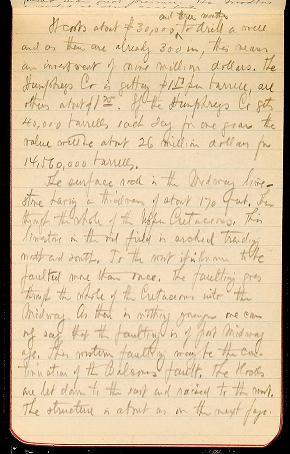 and three months
It costs about $30,000 to drill a well
and as there are already 300 in, this means
an investment of nine million dollars. The
Humphreys Co is getting $1 per barrel, are
others about $1 . If the Humphreys Co gets
40,000 barrels each day for one year the
value will be about 26 million dollars for
14,560,000 barrels.
The surface rock is the Midway lime-
stone having a thickness of about 170 feet. Then
through the whole of the Upper Cretaceous. This
limestone in the oil field is arched trending
north and south. To the west it is known to be
faulted more than once. The faulting goes
through the whole of the Cretaceous into the
Midway. As there is nothing younger one can
only say that the faulting is of post Midway
age. This western faulting may be the con-
tinuation of the Balcones fault. The blocks
are let down to the east and raised to the west.
The structure is about as on the next page.